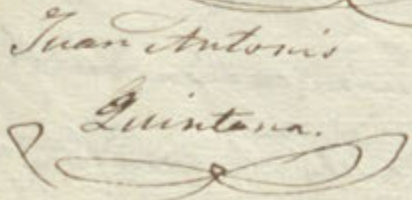 Juan Antonio
Quintana.